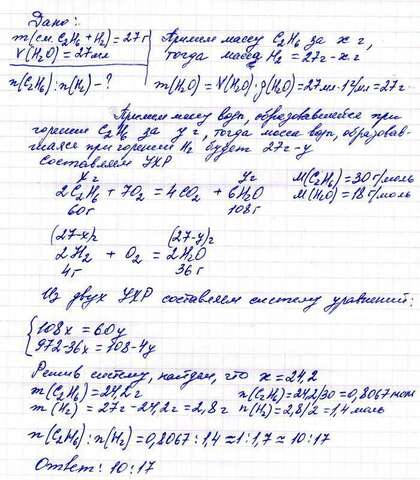 Дано:
m(см. C2H6 + H2) = 27г
V(H2O) = 27мл
n(C2H6) : n(H2) - ?
Примем массу C2H6 за x г,
тогда масса H2 = 27г - x г
m(H2O) = V(H2O)·ρ(H2O) = 27мл · 1г/мл = 27г
Примем массу воды, образовавшейся при
горении C2H6 за y г, тогда масса воды, образовав-
шаяся при горении H2 будет 27г - y
Составляем УХР
xг yг
2C2H6 + 7O2 = 4CO2 + 6H2O
60г 108г
M(C2H6) = 30 г/моль
M(H2O) = 18 г/моль
(27-x)г (27-y)г
2H2 + O2 = 2H2O
4г 36г
Из двух УХР составляем систему уравнений:
108x = 60y
972 - 36x = 108 - 4y
Решив систему, найдем, что x = 24,2
m(C2H6) = 24,2г n(C2H6) = 24,2/30 = 0,8067 моль
m(H2) = 27г - 24,2г = 2,8г n(H2) = 2,8/2 = 1,4 моль
n(C2H6) : n(H2) = 0,8067 : 1,4 ≈ 1 : 1,7 ≈ 10 : 17
Ответ: 10 : 17